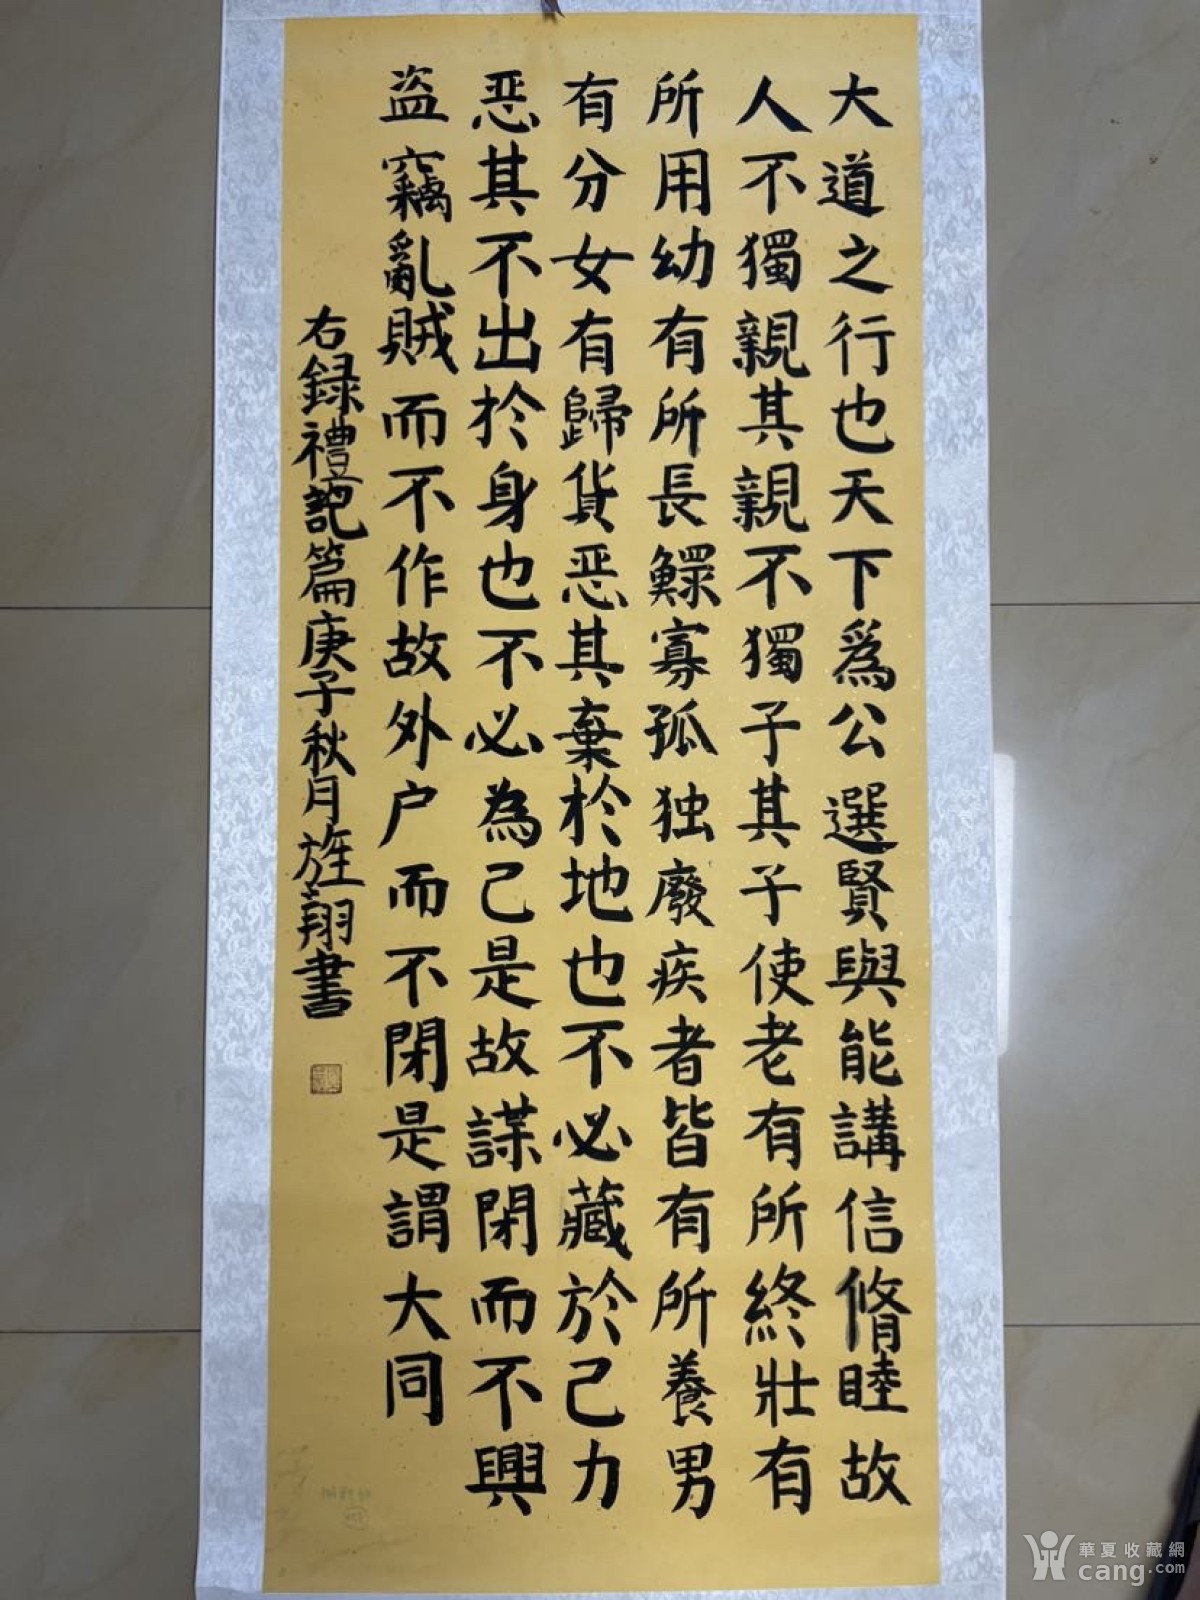 大道之行也天下爲公選賢與能講信脩睦故
人不獨親其親不獨子其子使老有所終壯有
所用幼有所長鰥寡孤独廢疾者皆有所養男
有分女有歸貨恶其棄於地也不必藏於己力
恶其不出於身也不必為己是故謀閉而不興
盗竊亂賊而不作故外户而不閉是謂大同
右録禮記篇庚子秋月旌翔書
華夏收藏網
cang.com